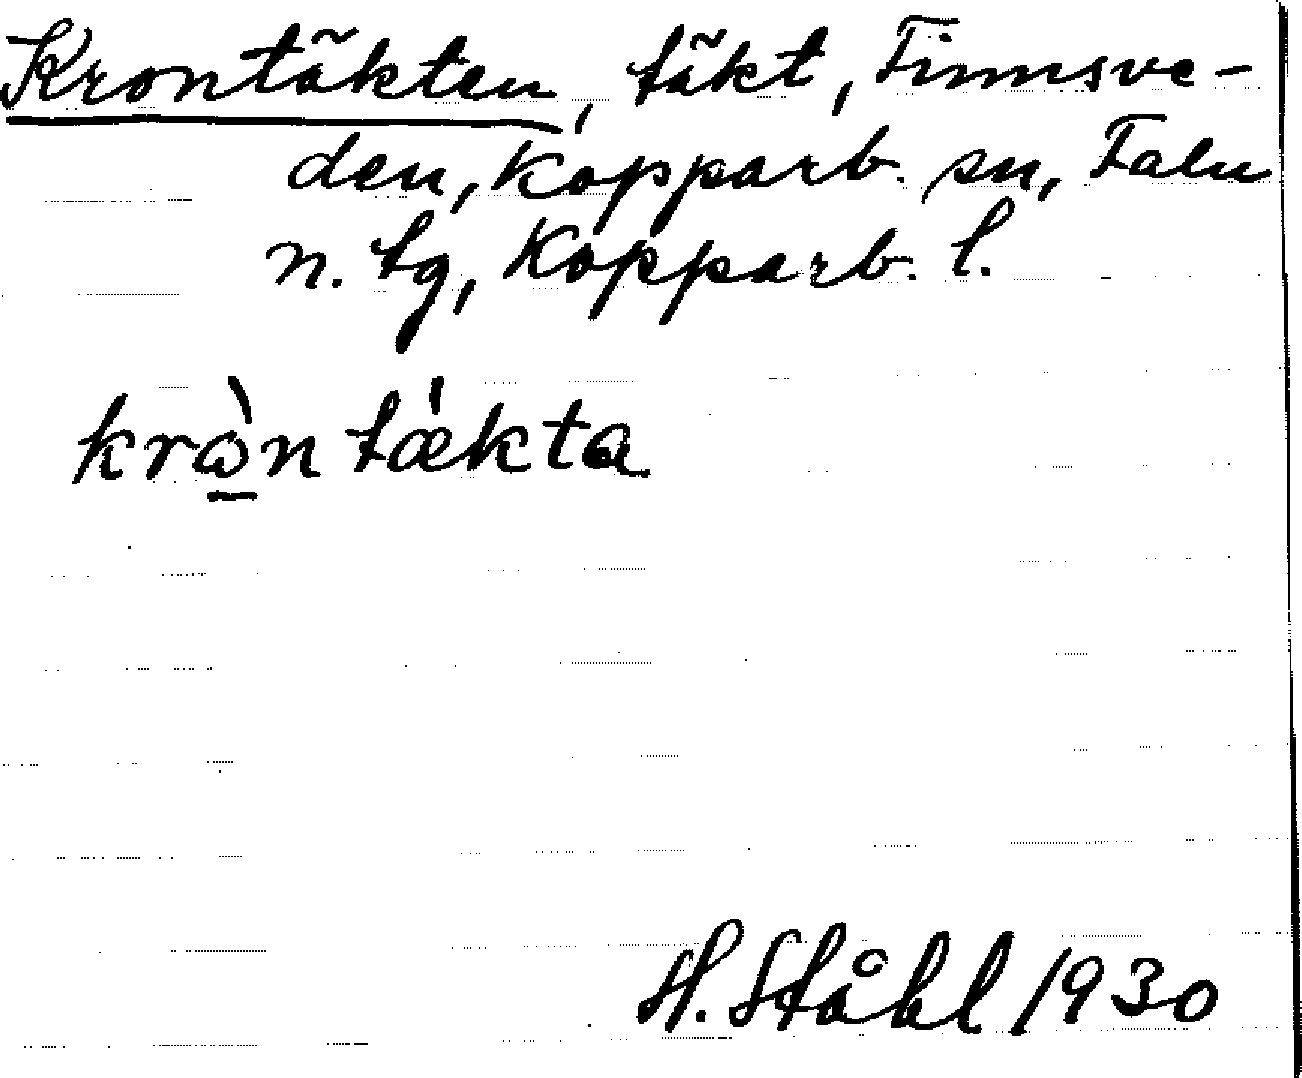 Krontäkten, täkt, Finnsve-
den, Kopparb. sn, Falu
n. tg, Kopparb. l.
krὼ̱ntǽkta
H. Ståhl 1930